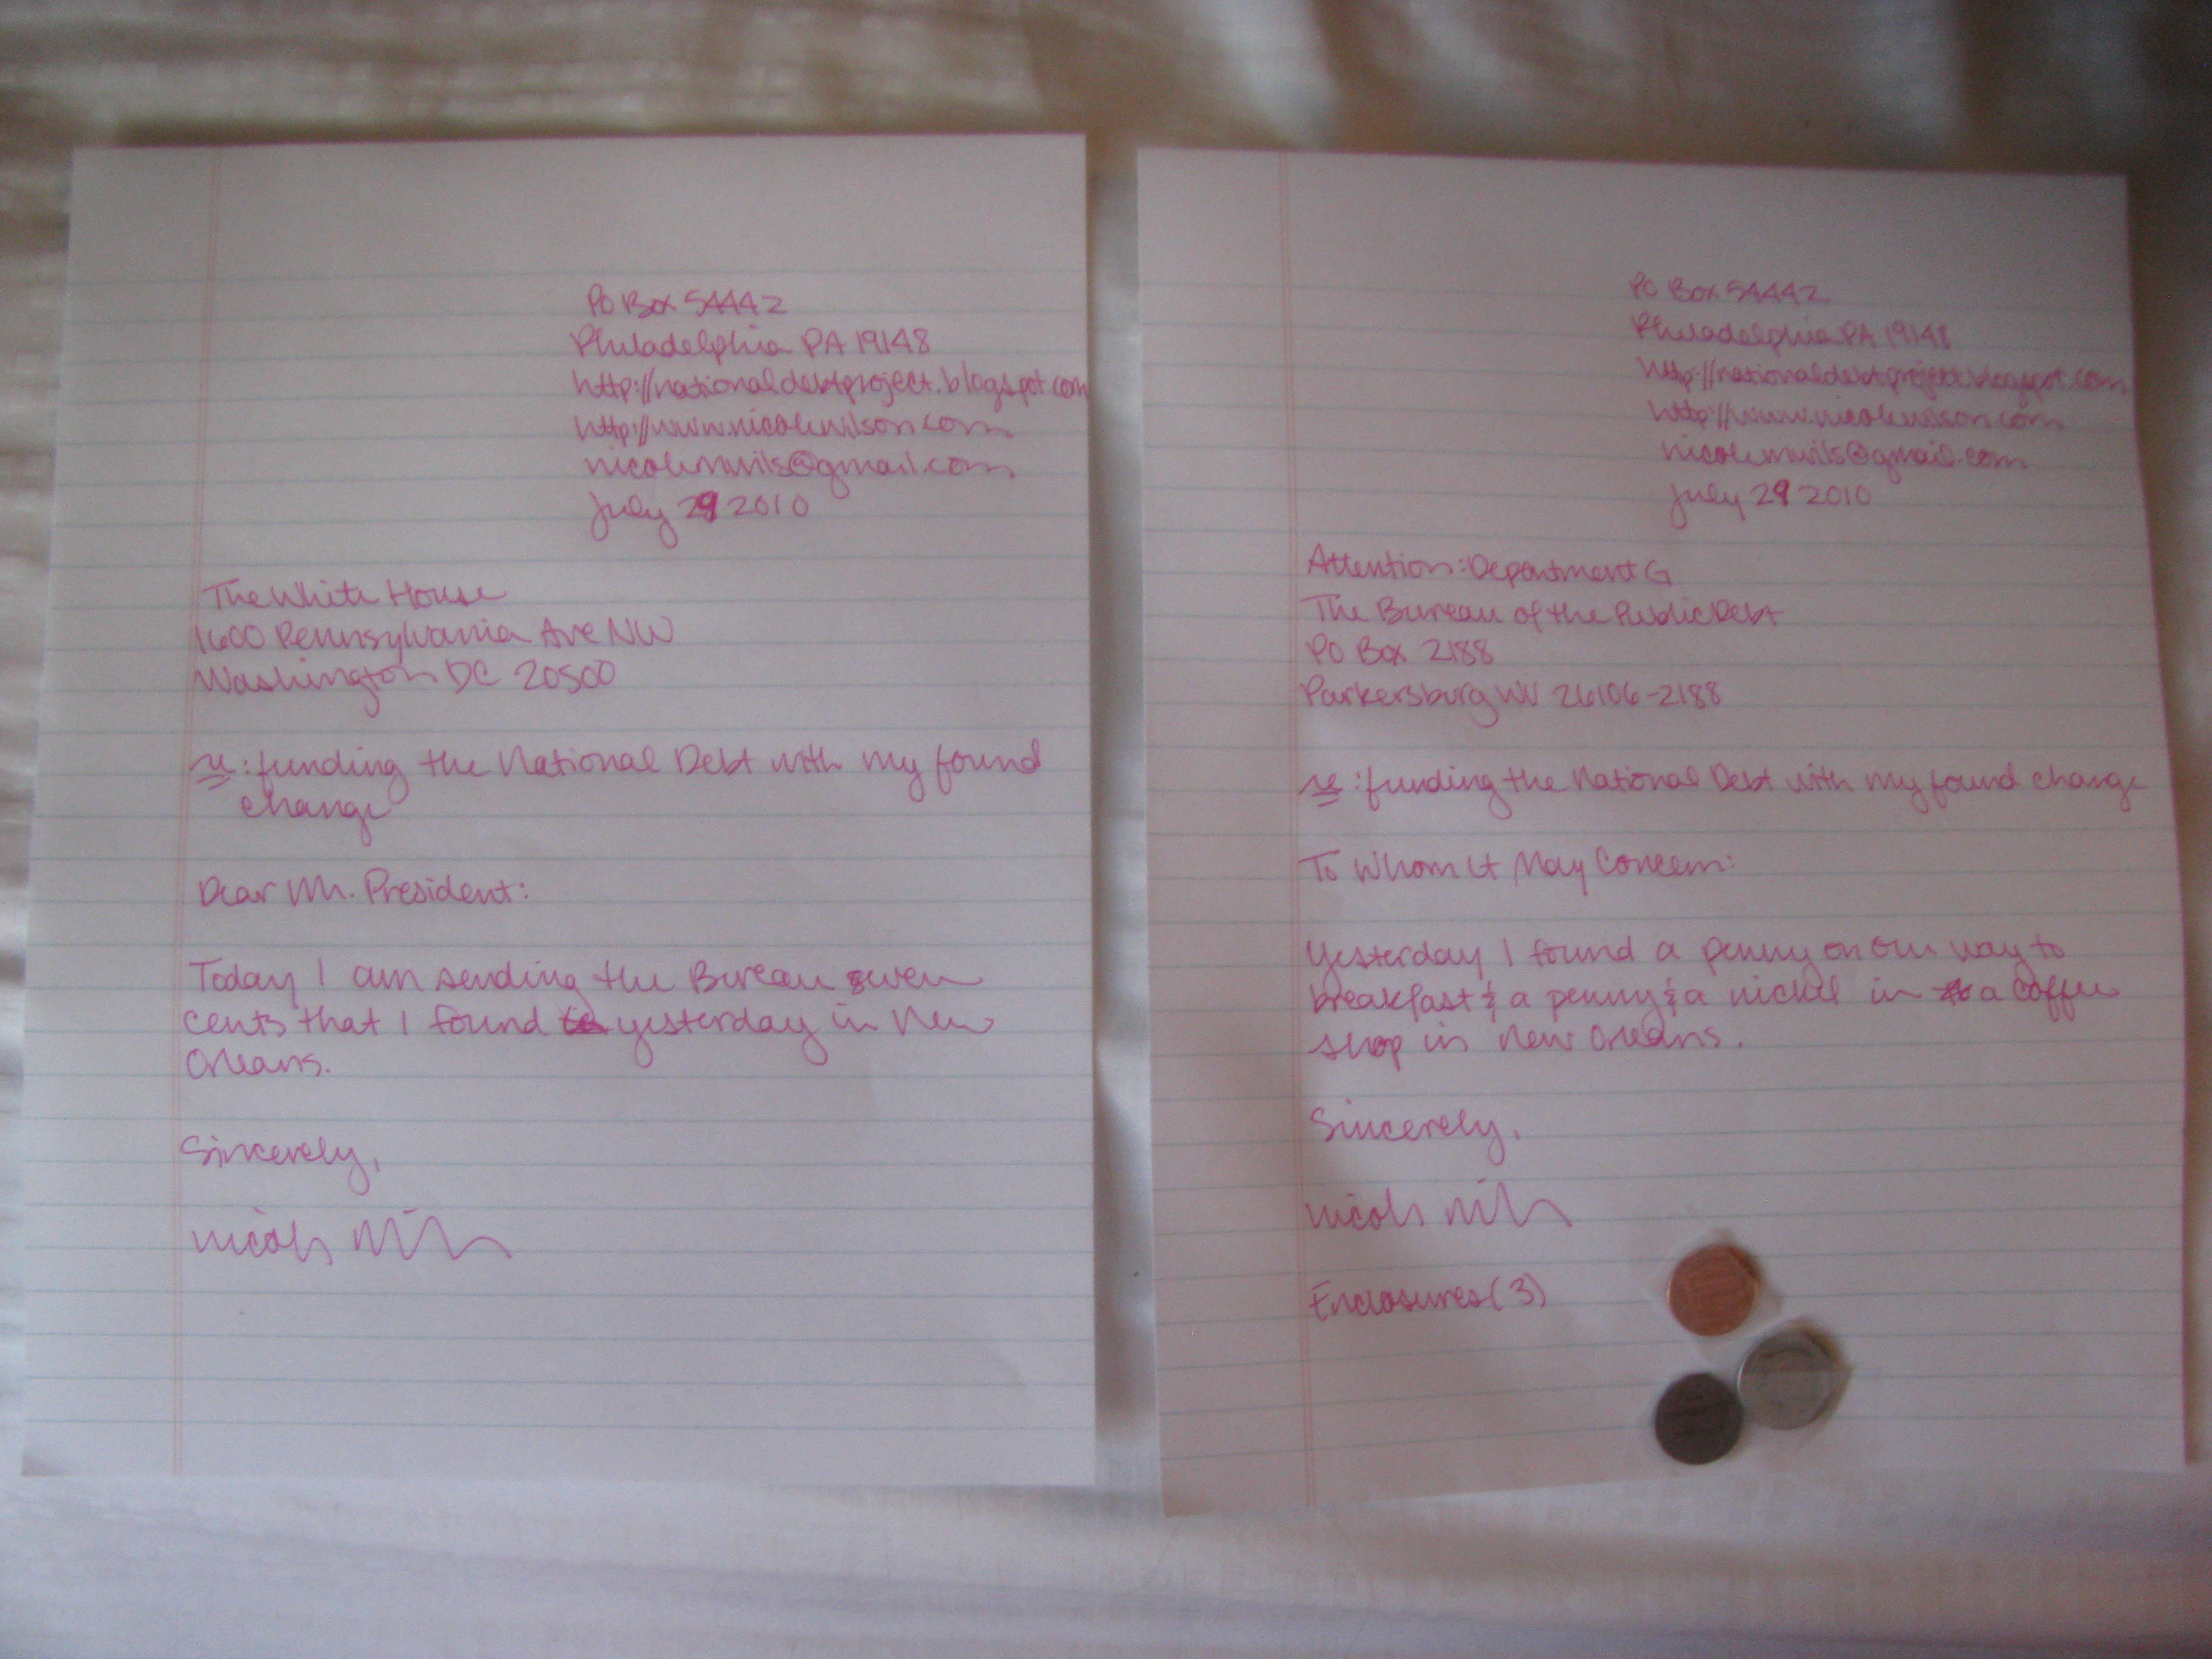 PO Box 54442
Philadelphia PA 19148
http://nationaldebtproject.blogspot.com
http://www.nicolewilson.com
nicolemwils@gmail.com
July 29 2010
The White House
1600 Pennsylvania Ave NW
Washington DC 20500
re: funding the National Debt with my found
change
Dear Mr. President:
Today I am sending the Bureau seven
cents that I found yesterday in New
Orleans.
Sincerely,
Nicole Wilson
PO Box 54442
Philadelphia PA 19148
http://nationaldebtproject.blogspot.com
http://www.nicolewilson.com
nicolemwils@gmail.com
July 29 2010
Attention: Department G
The Bureau of the Public Debt
PO Box 2188
Parkersburg WV 26106-2188
re: funding the National Debt with my found change
To Whom It May Concern:
Yesterday I found a penny on our way to
breakfast & a penny & a nickel in a coffee
shop in New Orleans.
Sincerely,
Nicole Wilson
Enclosures (3)